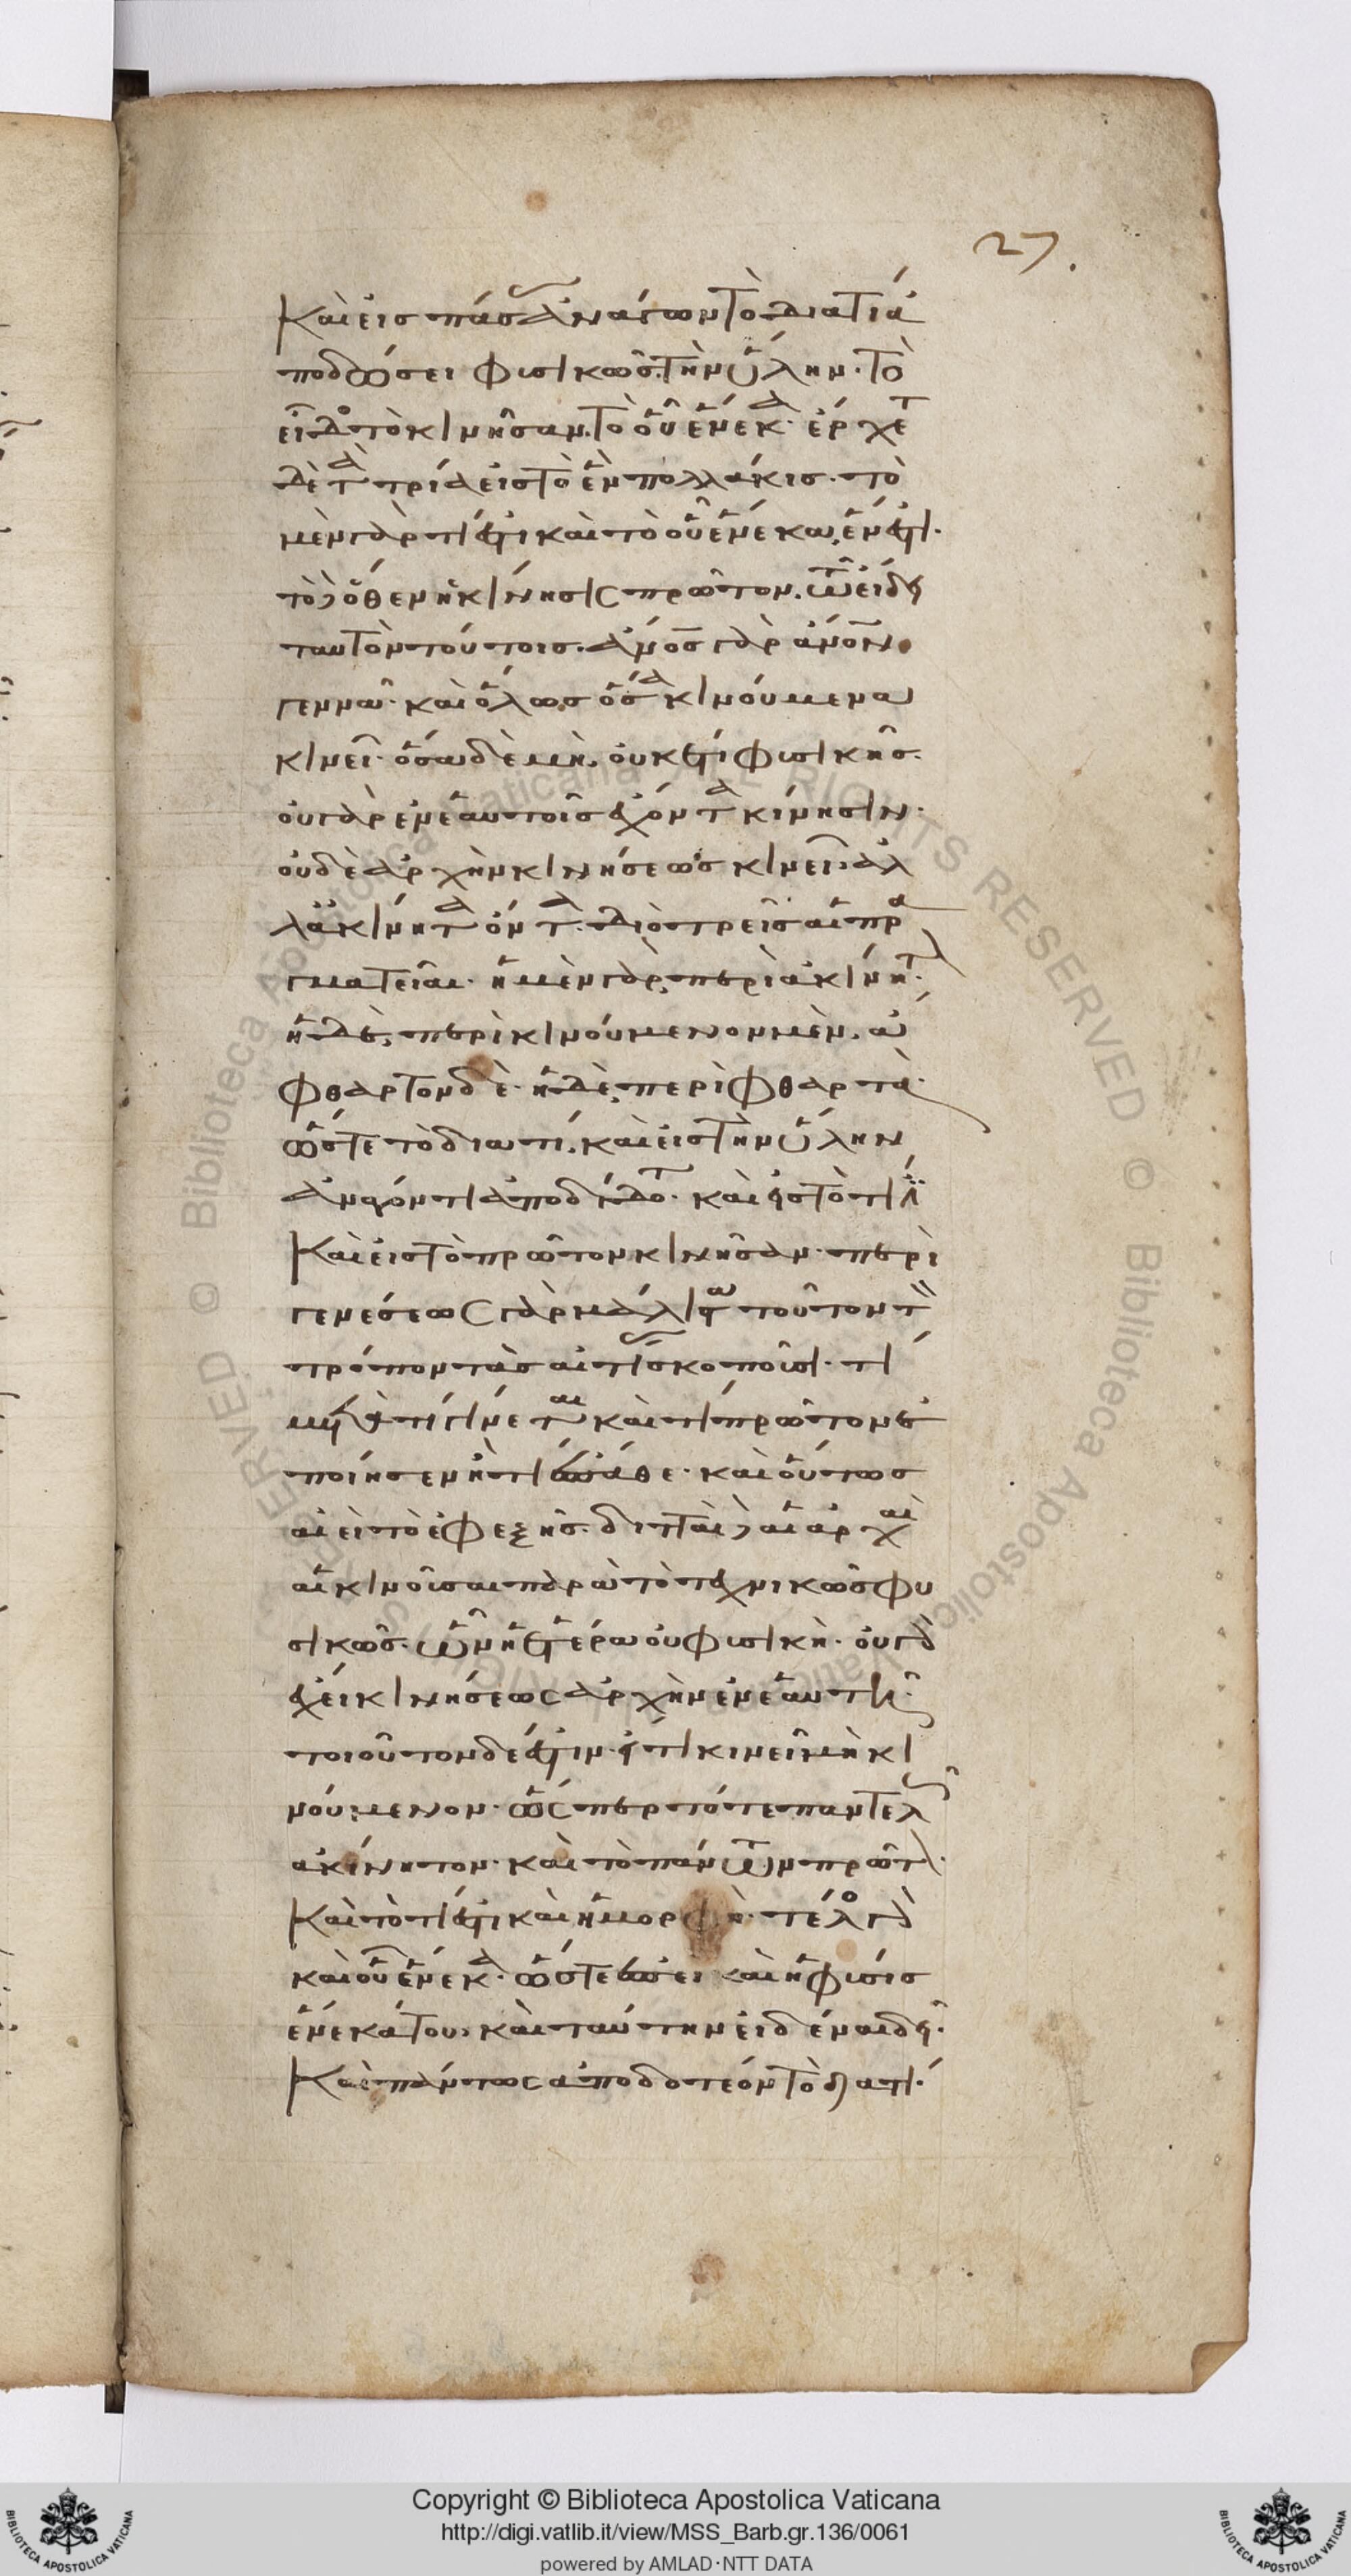 27.
Καὶ εἰς πάσας ἀνάγων τὸ διατί ἀ
ποδώσει φυσικῶς. τὴν ὕλην. τὸ
εἶδος τὸ κινῆσαν. τὸ οὗ ἕνεκα. ἔρχεται
δὲ τὰ τρία εἰς τὸ ἓν πολλάκις. τὸ
μὲν γὰρ τί ἐστι καὶ τὸ οὗ ἕνεκα, ἕν ἐστι.
τὸ δ' ὅθεν ἡ κίνησις πρῶτον. τῷ εἴδει
ταυτὸν τούτοις. ἄνος γὰρ ἄνον
γεννᾶ. καὶ ὅλως ὅσα κινούμενα
κινεῖ. ὅσα δὲ μή, οὐκέτι φυσικῆς.
οὐ γὰρ ἐν ἑαυτοῖς ἔχοντα κίνησιν.
οὐδὲ ἀρχὴν κινήσεως κινεῖ. ἀλ
λ' ἀκίνητα ὄντα. διὸ τρεῖς αἱ πρα
γματεῖαι. ἡ μὲν γὰρ, περὶ ἀκίνητον.
ἡ δὲ, περὶ κινούμενον μὲν, ἄ
φθαρτον δέ. ἡ δὲ, περὶ φθαρτά.
ὥστε τὸ διατί, καὶ εἰς τὴν ὕλην
ἀνάγοντι ἀποδίδοται. καὶ εἰς τὸ τί ἐστι
Καὶ εἰς τὸ πρῶτον κινῆσαν. περὶ
γενέσεως γὰρ μάλιστα τοῦτον τὸν
τρόπον τὰς αἰτίας σκοποῦσι. τί
μετὰ τί γίνεται καὶ τί πρῶτον ἐ
ποίησεν ἢ τί ἔπαθε. καὶ οὕτως
αἰεὶ τὸ ἐφεξῆς. διτταὶ δ' αἱ ἀρχαὶ
αἱ κινοῦσαι παρὰ τὸ τεχνικῶς φυ
σικῶς. ὧν ἡ ἑτέρα οὐ φυσική. οὐ γὰρ
ἔχει κινήσεως ἀρχὴν ἐν ἑαυτῇ.
τοιοῦτον δέ ἐστιν. εἴ τι κινεῖ μὴ κι
νούμενον. ὥσπερ τό τε παντελῶς
ἀκίνητον. καὶ τὸ πάντων πρῶτον.
Καὶ τὸ τί ἐστι καὶ ἡ μορφή. τέλος γὰρ
καὶ οὗ ἕνεκα. ὥστε ἐπεὶ καὶ ἡ φύσις
ἕνεκά του, καὶ ταύτην εἰδέναι δεῖ.
Καὶ πάντως ἀποδοτέον τὸ διατί.
Copyright © Biblioteca Apostolica Vaticana
http://digi.vatlib.it/view/MSS_Barb.gr.136/0061
powered by AMLAD·NTT DATA